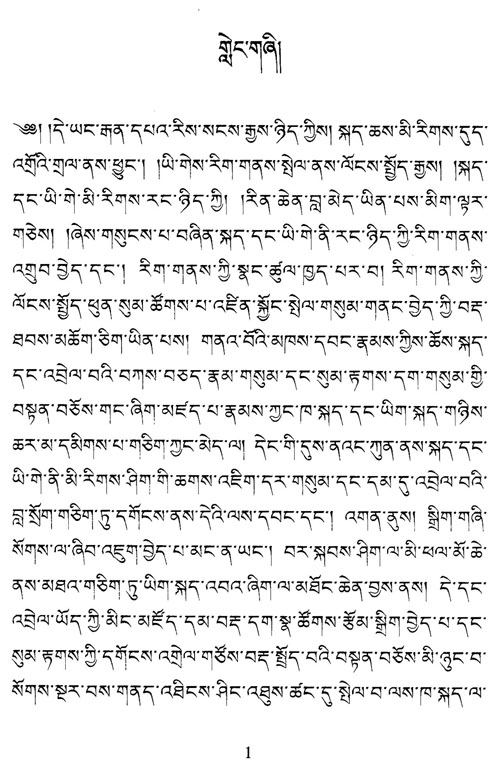 གླེང་གཞི།
༄༅། །དེ་ཡང་རྒན་དཔའ་རིས་སངས་རྒྱས་ཉིད་ཀྱིས། སྐད་ཆས་མི་རིགས་དུད་
འགྲོའི་གྲལ་ནས་ཕྱུང་། །ཡི་གེས་རིག་གནས་སྤེལ་ནས་ལོངས་སྤྱོད་རྒྱས། །སྐད་
དང་ཡི་གེ་མི་རིགས་རང་ཉིད་ཀྱི། །རིན་ཆེན་བླ་མེད་ཡིན་པས་མིག་ལྟར་
གཅེས། །ཞེས་གསུངས་པ་བཞིན་སྐད་དང་ཡི་གེ་ནི་རང་ཉིད་ཀྱི་རིག་གནས་
འགྲུབ་བྱེད་དང་། རིག་གནས་ཀྱི་སྣང་ཚུལ་ཁྱད་པར་བ། རིག་གནས་ཀྱི་
ལོངས་སྤྱོད་ཕུན་སུམ་ཚོགས་པ་འཛིན་སྐྱོང་སྤེལ་གསུམ་གནང་བྱེད་ཀྱི་བརྡ་
ཐབས་མཆོག་ཅིག་ཡིན་པས། གནའ་བོའི་མཁས་དབང་རྣམས་ཀྱིས་ཆོས་སྐད་
དང་འབྲེལ་བའི་བཀས་བཅད་རྣམ་གསུམ་དང་སུམ་རྟགས་དག་གསུམ་གྱི་
བསྟན་བཅོས་གང་ཞིག་མཛད་པ་རྣམས་ཀྱང་ཁ་སྐད་དང་ཡིག་སྐད་གཉིས་
ཆར་མ་དམིགས་པ་གཅིག་ཀྱང་མེད་ལ། དེང་གི་དུས་ནའང་ཀུན་ནས་སྐད་དང་
ཡི་གེ་ནི་མི་རིགས་ཤིག་གི་ཆགས་འཇིག་དར་གསུམ་དང་དམ་དུ་འབྲེལ་བའི་
བླ་སྲོག་གཅིག་ཏུ་དགོངས་ནས་དེའི་ལས་དབང་དང་། འགན་ནུས། སྒྲིག་གཞི་
སོགས་ལ་ཞིབ་འཇུག་བྱེད་པ་མང་ན་ཡང་། བར་སྐབས་ཤིག་ལ་མི་ཕལ་མོ་ཆེ་
ནས་མཐའ་གཅིག་ཏུ་ཡིག་སྐད་འབའ་ཞིག་ལ་མཐོང་ཆེན་བྱས་ནས། དེ་དང་
འབྲེལ་ཡོད་ཀྱི་མིང་མཛོད་དམ་བརྡ་དག་སྣ་ཚོགས་རྩོམ་སྒྲིག་བྱེད་པ་དང་
སུམ་རྟགས་ཀྱི་དགོངས་འགྲེལ་གཙོས་བརྡ་སྤྲོད་བའི་བསྟན་བཅོས་མི་ཉུང་བ་
སོགས་སྔར་བས་གནད་འཐིངས་ཤིང་འཐུས་ཚང་དུ་སྤེལ་བ་ལས་ཁ་སྐད་ལ་
1